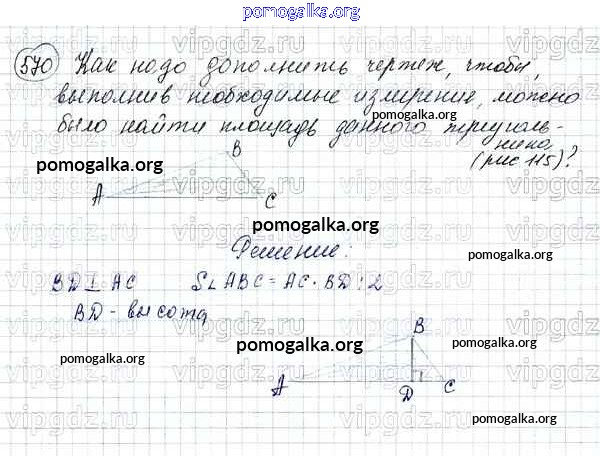 pomogalka.org
570 Как надо дополнить чертеж, чтобы,
выполнив необходимые измерения, можно
pomogalka.org
было найти площадь данного треуголь-
ника
(рис 115)?
pomogalka.org
B
A
C
pomogalka.org
Решение:
pomogalka.org
BD⊥AC S∠ABC = AC · BD : 2
BD - высота
pomogalka.org
pomogalka.org
B
A
D
C
pomogalka.org
vipgdz.ru